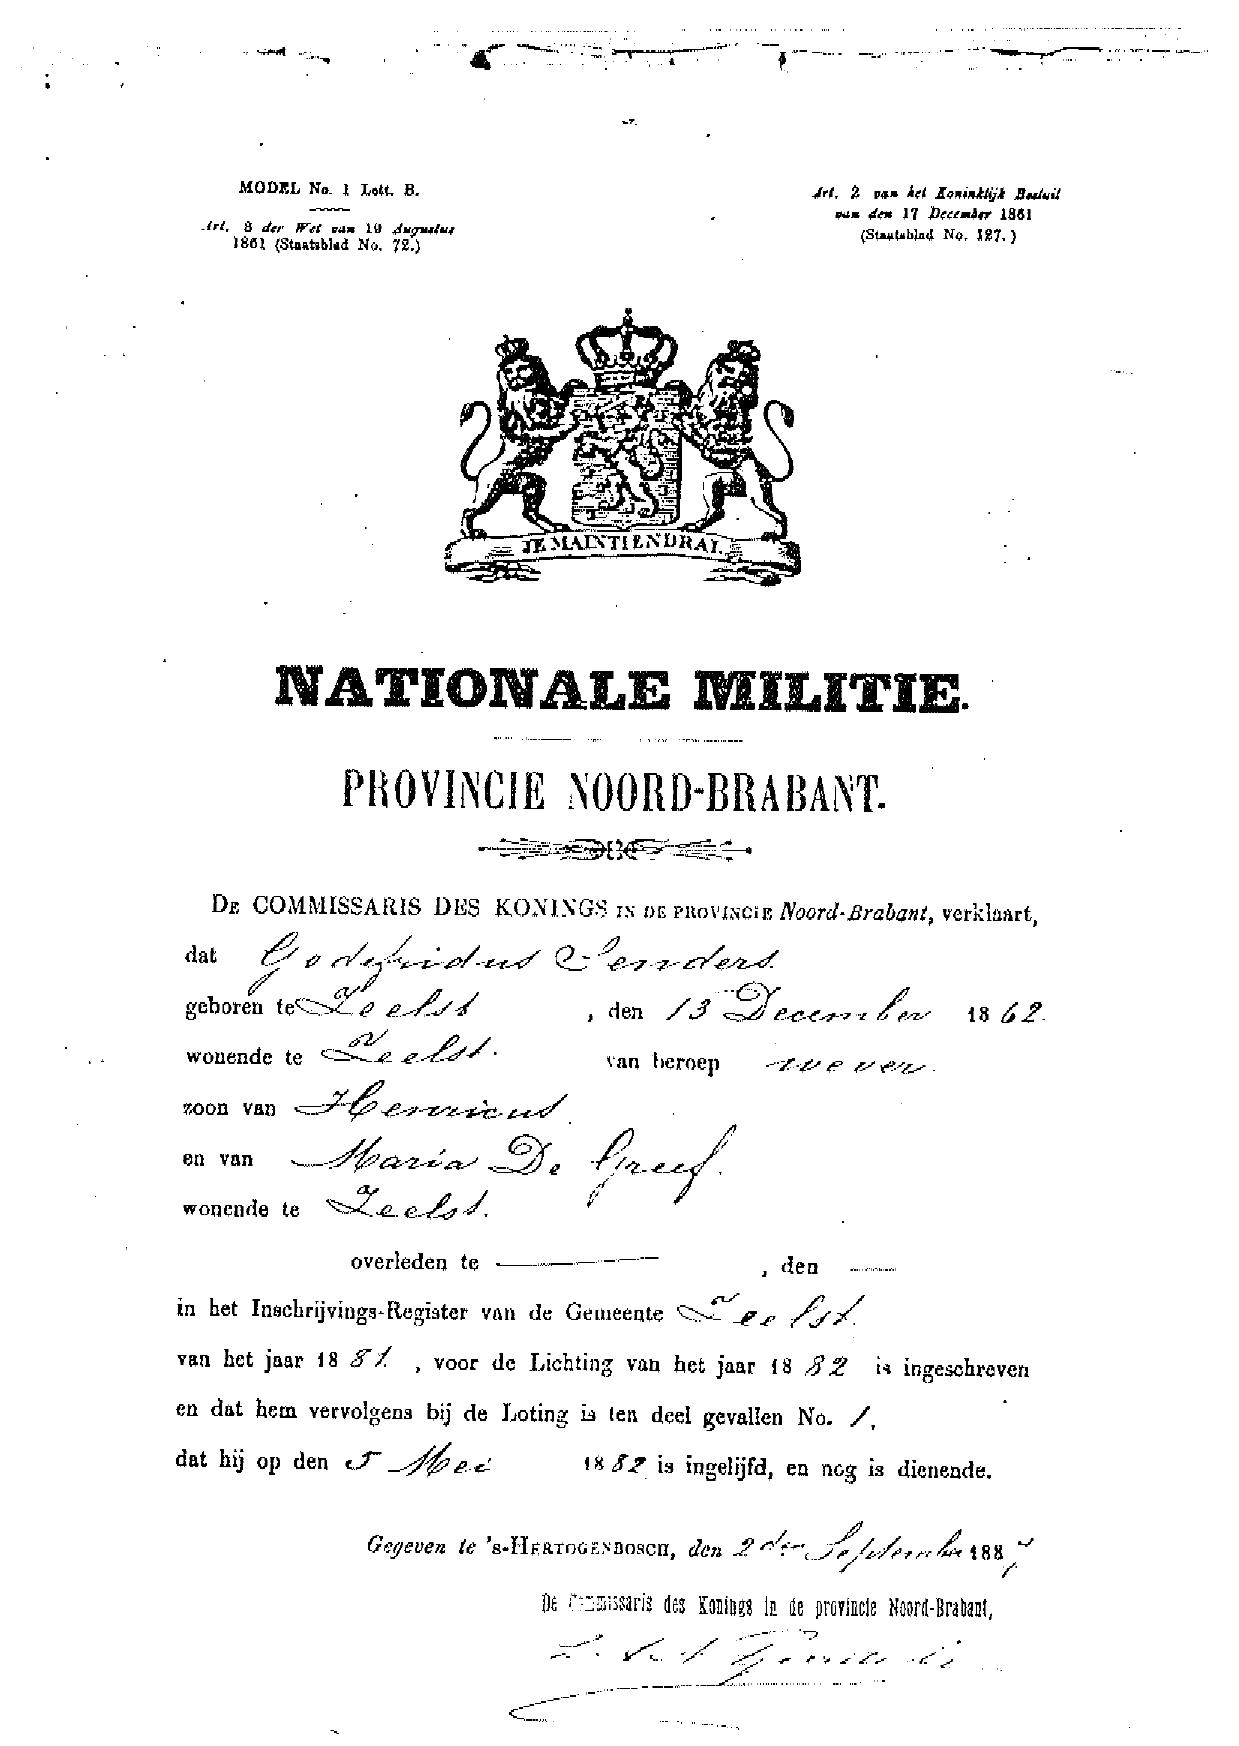 MODEL No. 1 Lett. B.
Art. 8 der Wet van 19 Augustus
1861 (Staatsblad No. 72.)
Art. 2 van het Koninklijk Besluit
van den 17 December 1861
(Staatsblad No. 127.)
JE MAINTIENDRAI.
NATIONALE MILITIE.
PROVINCIE NOORD-BRABANT.
DE COMMISSARIS DES KONINGS IN DE PROVINCIE Noord-Brabant, verklaart,
dat Godefridus Senders
geboren te Zeelst , den 13 December 1862.
wonende te Zeelst. van beroep wever.
zoon van Henricus
en van Maria De Greef.
wonende te Zeelst.
overleden te , den
in het Inschrijvings-Register van de Gemeente Zeelst.
van het jaar 1881 , voor de Lichting van het jaar 1882 is ingeschreven
en dat hem vervolgens bij de Loting is ten deel gevallen No. 1,
dat hij op den 5 Mei 1882 is ingelijfd, en nog is dienende.
Gegeven te 's-HERTOGENBOSCH, den 2den September 188
De Commissaris des Konings in de provincie Noord-Brabant,